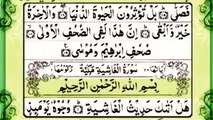 فَصَلَّىٰ ۝ بَلْ تُؤْثِرُونَ الْحَيٰوةَ الدُّنْيَا ۝ وَالْاٰخِرَةُ
خَيْرٌ وَّاَبْقٰى ۝ اِنَّ هٰذَا لَفِى الصُّحُفِ الْاُوْلٰى ۝
صُحُفِ اِبْرٰهِيْمَ وَمُوْسٰى ۝
سُوْرَةُ الْغَاشِيَةِ مَكِّيَّةٌ
بِسْمِ اللّٰهِ الرَّحْمٰنِ الرَّحِيْمِ
هَلْ اَتٰىكَ حَدِيْثُ الْغَاشِيَةِ ۝ وُجُوْهٌ يَّوْمَئِذٍ